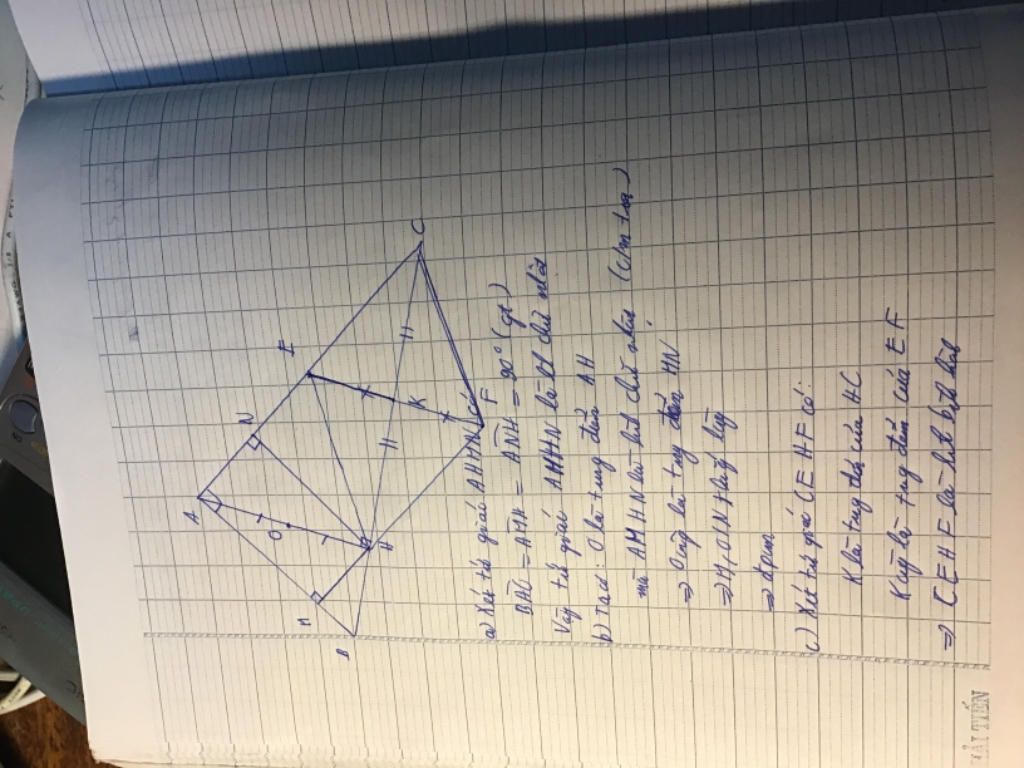 A
N
E
O
M
H
B
K
C
F
a) Xét tứ giác AMHN có
BAC = AMH = ANH = 90° (gt)
Vậy tứ giác AMHN là
b) Ta có: O là trung điểm AH
mà AMHN là hcn chữ nhật (c/m trên)
⇒ O cũng là trung điểm MN
⇒ M, O, N thẳng
⇒ đpcm
c) Xét tứ giác CEHF có:
K là trung điểm của HC
K là trung điểm của EF
⇒ CEHF là hình bình hành
HẢI TIẾN